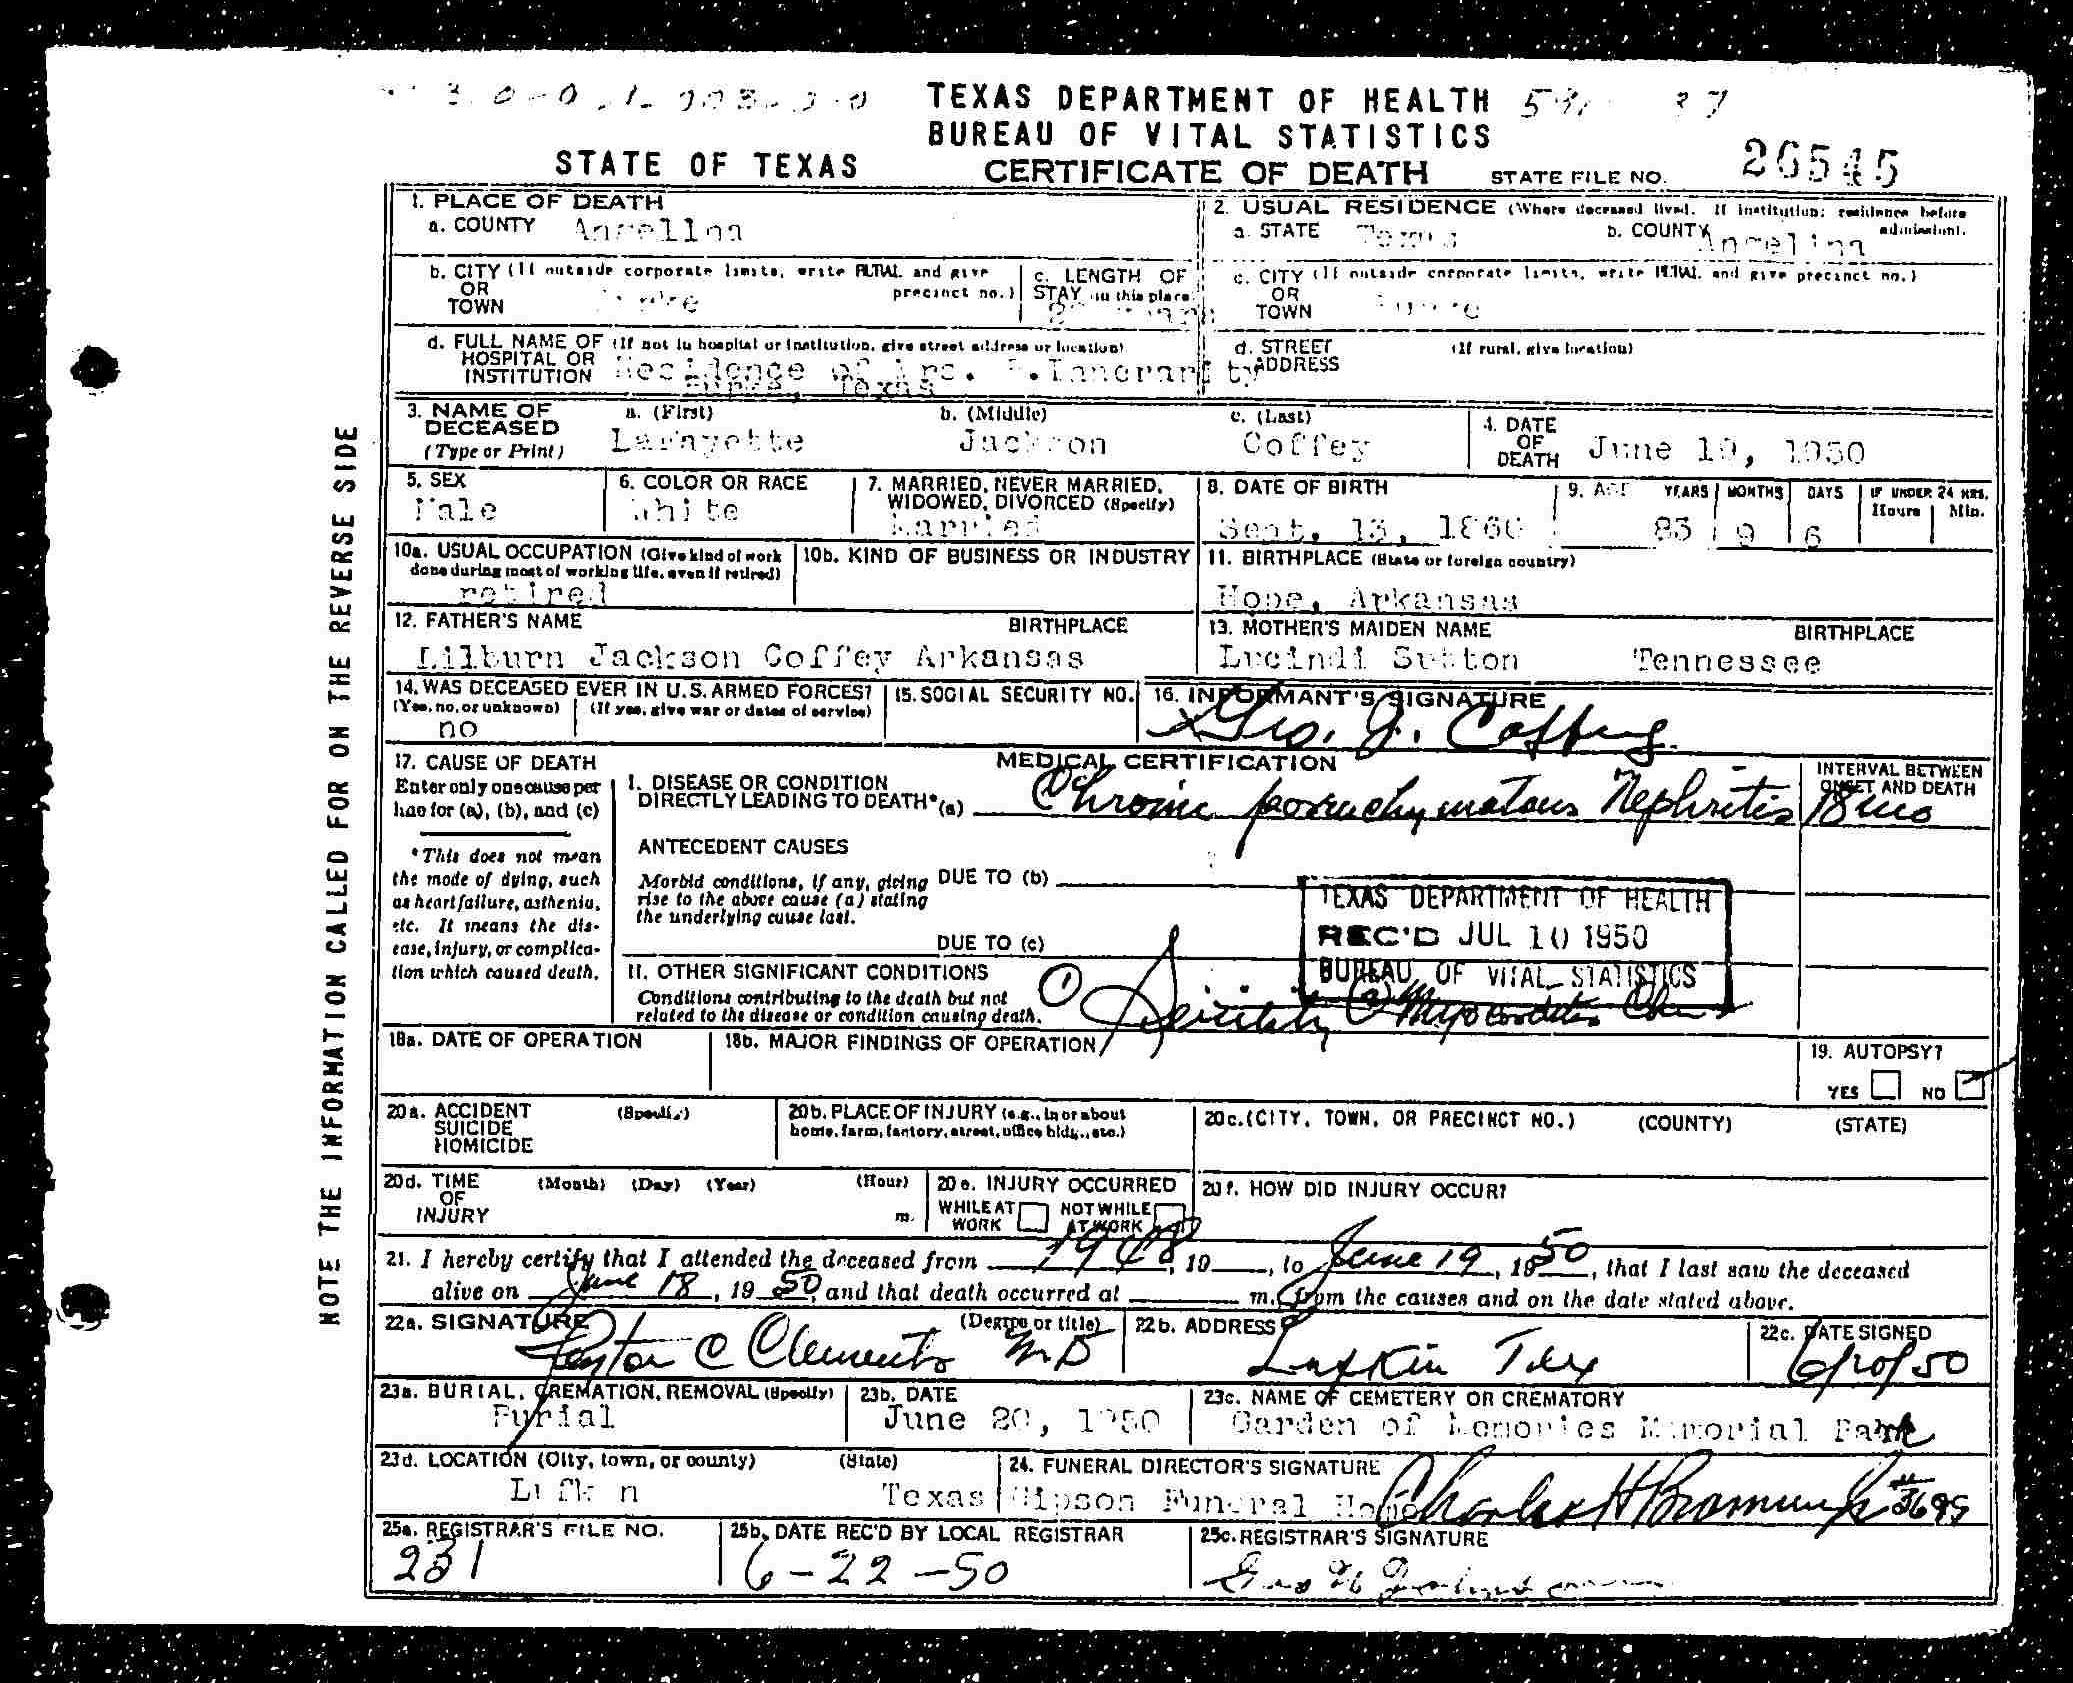 TEXAS DEPARTMENT OF HEALTH
BUREAU OF VITAL STATISTICS
STATE OF TEXAS CERTIFICATE OF DEATH STATE FILE NO. 26545
1. PLACE OF DEATH
a. COUNTY Angelina
2. USUAL RESIDENCE (Where deceased lived. If institution: residence before admission).
a. STATE Texas b. COUNTY Angelina
b. CITY (If outside corporate limits, write RURAL and give precinct no.)
OR
TOWN
c. LENGTH OF
STAY (in this place)
c. CITY (If outside corporate limits, write RURAL and give precinct no.)
OR
TOWN
d. FULL NAME OF (If not in hospital or institution, give street address or location)
HOSPITAL OR
INSTITUTION Residence of Mrs.
Texas
d. STREET (If rural, give location)
ADDRESS
3. NAME OF DECEASED (Type or Print)
a. (First) LaFayette
b. (Middle) Jackson
c. (Last) Coffey
4. DATE OF DEATH June 19, 1950
5. SEX Male
6. COLOR OR RACE White
7. MARRIED, NEVER MARRIED, WIDOWED, DIVORCED (Specify) Married
8. DATE OF BIRTH Sept. 13,
9. AGE YEARS MONTHS 9 DAYS 6 IF UNDER 24 HRS. Hours Min.
10a. USUAL OCCUPATION (Give kind of work done during most of working life, even if retired) retired
10b. KIND OF BUSINESS OR INDUSTRY
11. BIRTHPLACE (State or foreign country) Hope, Arkansas
12. FATHER'S NAME BIRTHPLACE
Lilburn Jackson Coffey Arkansas
13. MOTHER'S MAIDEN NAME BIRTHPLACE
Lucindi Sutton Tennessee
14. WAS DECEASED EVER IN U.S. ARMED FORCES?
(Yes, no, or unknown) (If yes, give war or dates of service)
no
15. SOCIAL SECURITY NO.
16. INFORMANT'S SIGNATURE
x Geo. J. Coffey
17. CAUSE OF DEATH
Enter only one cause per line for (a), (b), and (c)
*This does not mean the mode of dying, such as heart failure, asthenia, etc. It means the disease, injury, or complication which caused death.
MEDICAL CERTIFICATION
I. DISEASE OR CONDITION
DIRECTLY LEADING TO DEATH* (a) Chronic parenchymatous Nephritis
INTERVAL BETWEEN ONSET AND DEATH
18 mo
ANTECEDENT CAUSES
Morbid conditions, if any, giving rise to the above cause (a) stating the underlying cause last.
DUE TO (b)
DUE TO (c)
TEXAS DEPARTMENT OF HEALTH
REC'D JUL 10 1950
BUREAU OF VITAL STATISTICS
II. OTHER SIGNIFICANT CONDITIONS
Conditions contributing to the death but not related to the disease or condition causing death.
① Senility ② Myocarditis
18a. DATE OF OPERATION
18b. MAJOR FINDINGS OF OPERATION
19. AUTOPSY?
YES NO
20a. ACCIDENT (Specify)
SUICIDE
HOMICIDE
20b. PLACE OF INJURY (e.g., in or about home, farm, factory, street, office bldg., etc.)
20c. (CITY, TOWN, OR PRECINCT NO.) (COUNTY) (STATE)
20d. TIME OF INJURY (Month) (Day) (Year) (Hour) m.
20e. INJURY OCCURRED
WHILE AT WORK NOT WHILE AT WORK
20f. HOW DID INJURY OCCUR?
21. I hereby certify that I attended the deceased from 1948, 19 , to June 19, 1950, that I last saw the deceased
alive on June 18, 1950, and that death occurred at m. from the causes and on the date stated above.
22a. SIGNATURE (Degree or title)
Peyton C Clements M.D
22b. ADDRESS
Lufkin Tex
22c. DATE SIGNED
23a. BURIAL, CREMATION, REMOVAL (Specify)
Burial
23b. DATE
June 20, 1950
23c. NAME OF CEMETERY OR CREMATORY
Garden of Memories Memorial Park
23d. LOCATION (City, town, or county) (State)
Lufkin Texas
24. FUNERAL DIRECTOR'S SIGNATURE
Gipson Funeral Home #3699
25a. REGISTRAR'S FILE NO.
231
25b. DATE REC'D BY LOCAL REGISTRAR
6-22-50
25c. REGISTRAR'S SIGNATURE
NOTE THE INFORMATION CALLED FOR ON THE REVERSE SIDE